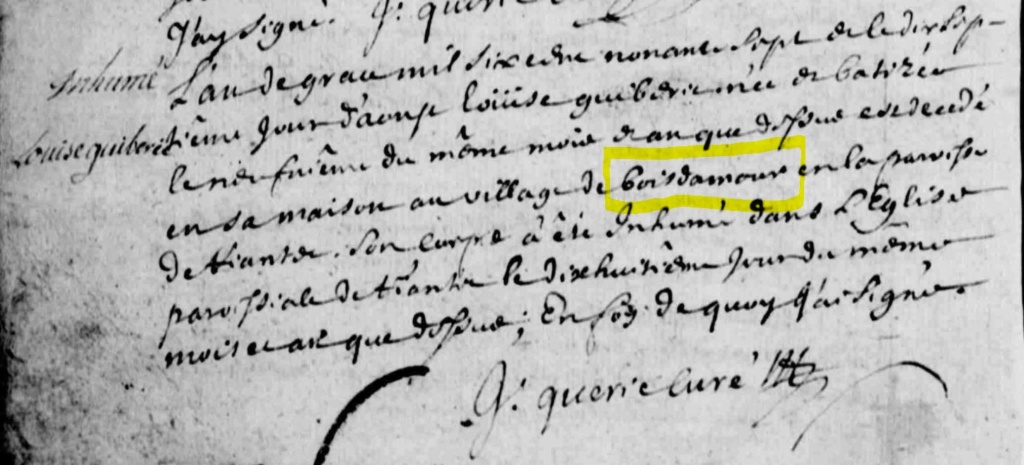 J'ay signé. J. querie
Inhumé L'an de grace mil six cent nonante sept et le dix sep-
Louise quiberie tième jour d'aoust loüise quiberie née et batizée
le neufuième du même mois et an que dessus est decedé
en sa maison au village de boisdamour en la paroisse
de tiante. Son corps à êté Inhumé dans L'Eglise
paroissiale de tiante le dixhuitième jour du même
mois et an que dessus; En foy de quoy j'ai signé.
J. querie curé